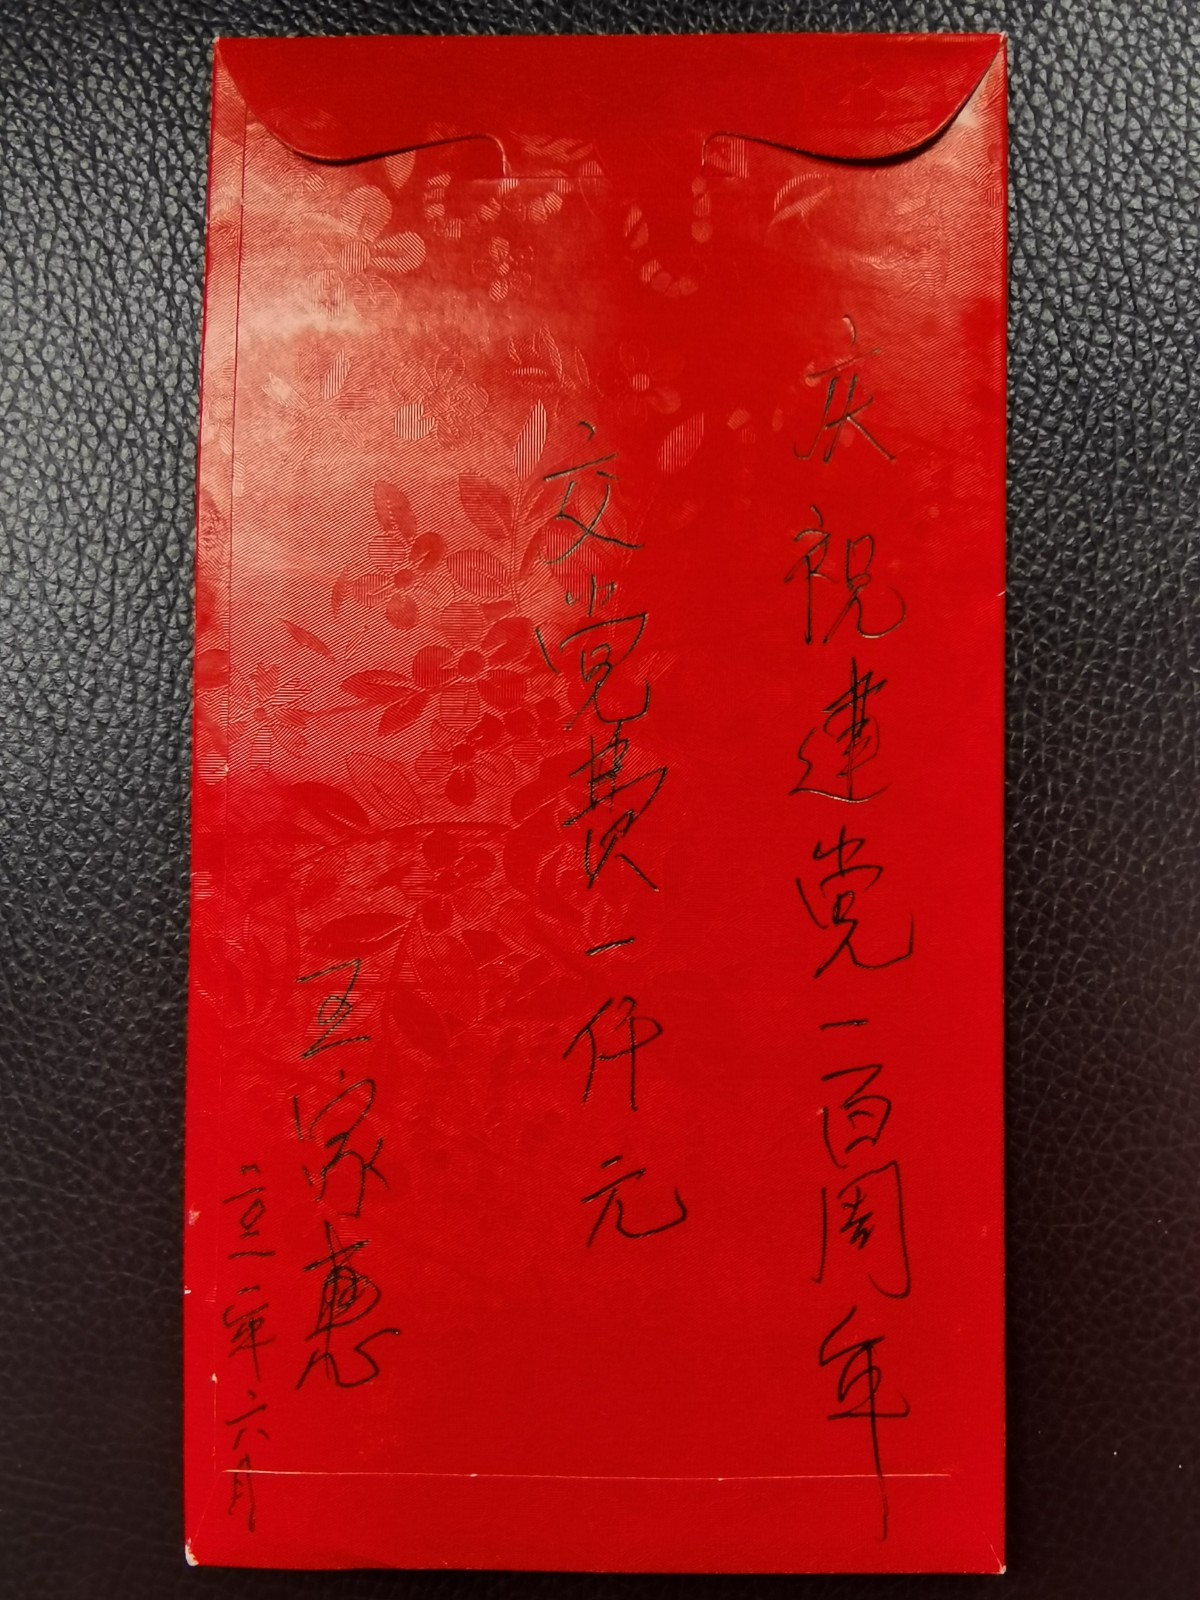 庆祝建党一百周年
交党费一仟元
王家惠
二〇二一年六月